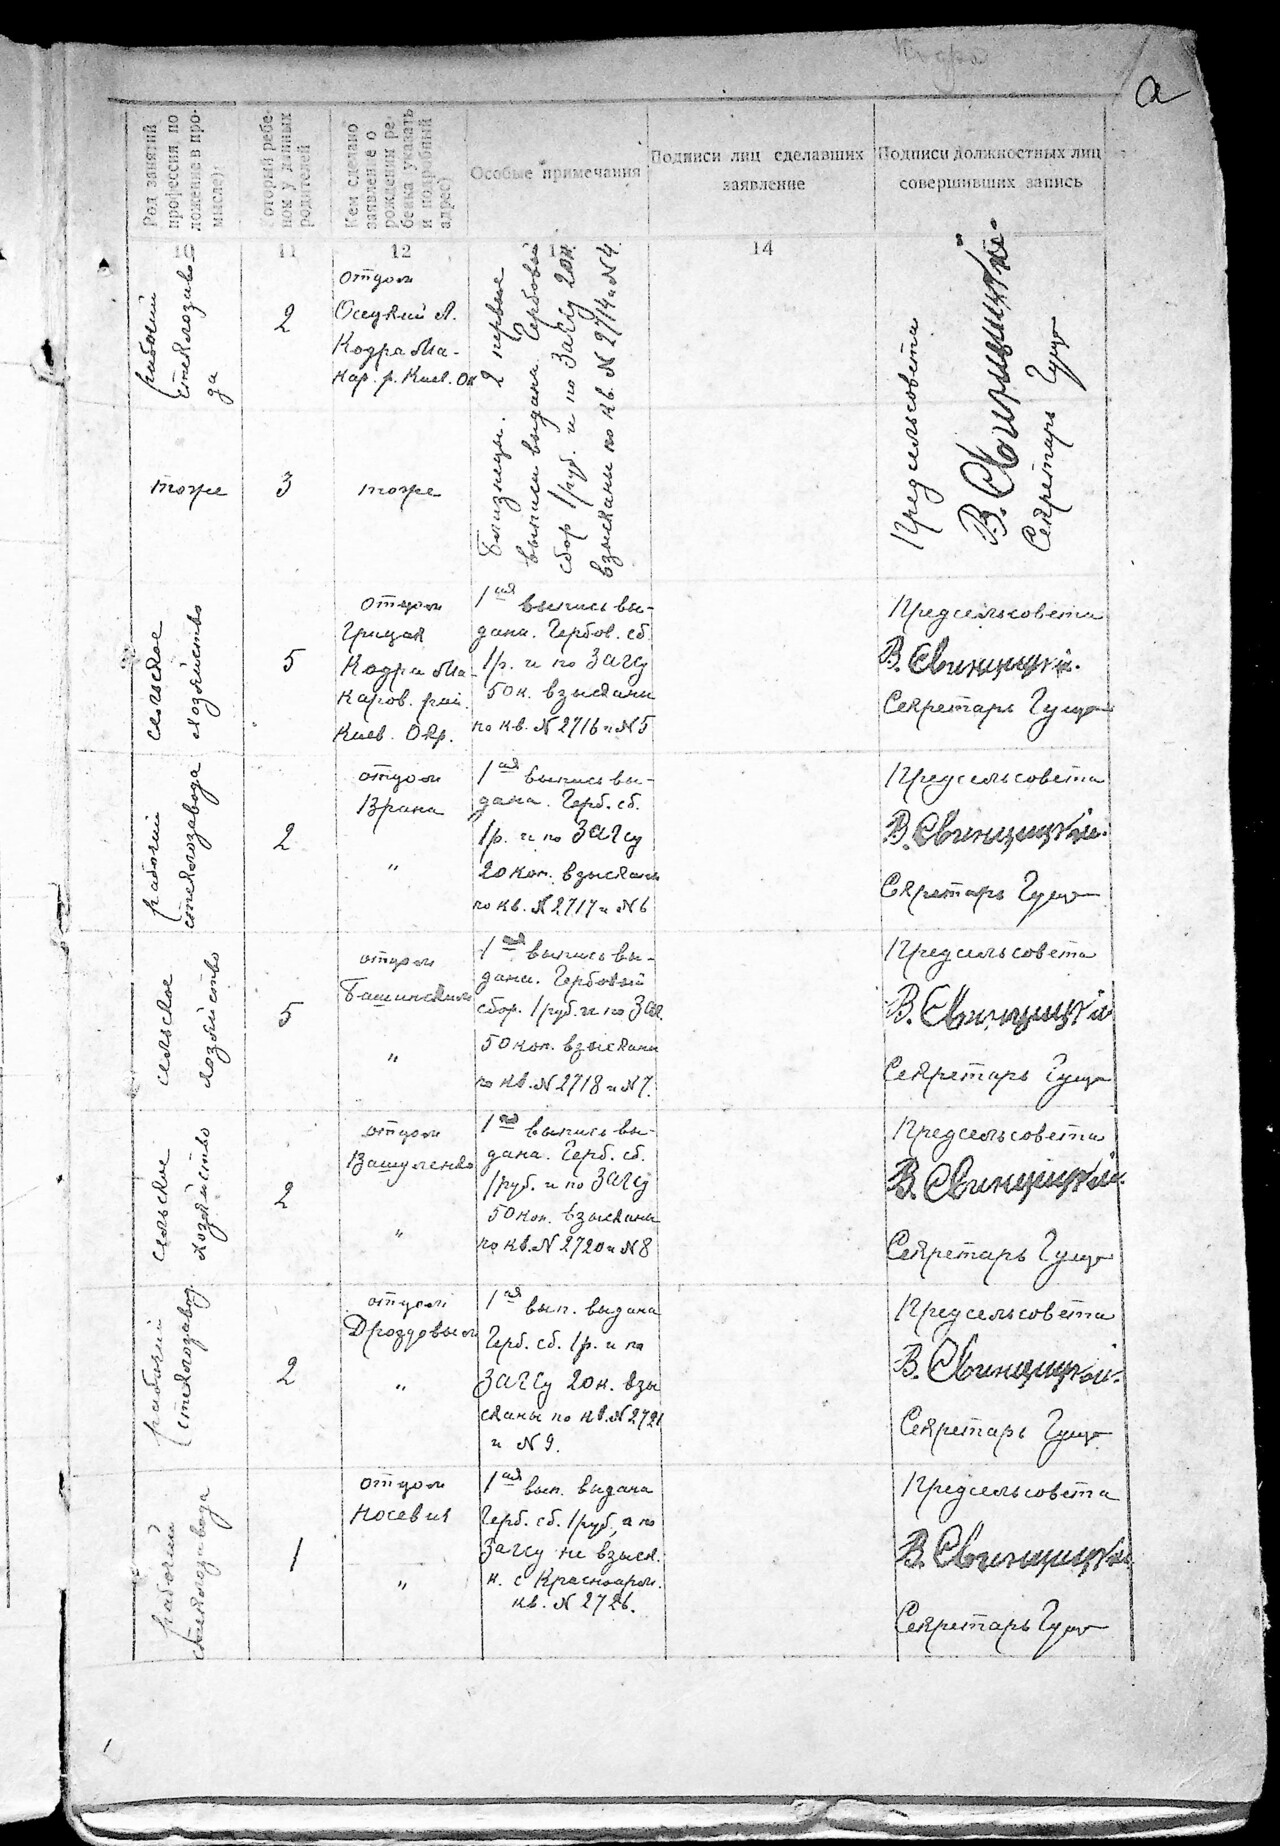 Кодра
а
Род занятий
профессия по
ложение в про-
мысле):
который ребе-
нок у данных
родителей
Кем сделано
заявление о
рождении ре-
бенка указать
и подробный
адрес)
Особые примечания
Подписи лиц сделавших
заявление
Подписи должностных лиц
совершивших запись
10
11
12
14
рабочий
стеклозаво-
да
2
отцом
Осецкий А.
Кодра Ма-
кар. р. Киев. Ок
Близнецы. 2 первые
выписи выдана. Гербовый
сбор 1 руб. и по ЗАГСу 20 к.
взысканы по кв. № 2714 и № 4
Предсельсовета
В. Свинцицкий
Секретарь Гущ
тоже
3
тоже
сельское
хозяйство
5
отцом
Грицая
Кодра Ма-
каров. рай.
Киев. Окр.
1ая выпись вы-
дана. Гербов. сб.
1 р. и по ЗАГСу
50 к. взысканы
по кв. № 2716 и № 5
Предсельсовета
В. Свинцицкий.
Секретарь Гущ
рабочий
стеклозавода
2
отцом
"
1ая выпись вы-
дана. Герб. сб.
1 р. и по ЗАГСу
20 коп. взысканы
по кв. № 2717 и № 6
Предсельсовета
В. Свинцицкий.
Секретарь Гущ
сельское
хозяйство
5
отцом
Башинским
"
1ая выпись вы-
дана. Гербовый
сбор. 1 руб. и по ЗАГ.
50 коп. взысканы
по кв. № 2718 и № 7.
Предсельсовета
В. Свинцицкий
Секретарь Гущ
сельское
хозяйство
2
отцом
Ващуленко
"
1ая выпись вы-
дана. Герб. сб.
1 руб. и по ЗАГСу
50 коп. взысканы
по кв. № 2720 и № 8
Предсельсовета
В. Свинцицкий.
Секретарь Гущ
рабочий
стеклозавод.
2
отцом
Дроздовым
"
1ая вып. выдана
Герб. сб. 1 р. и по
ЗАГСу 20 к. взы
сканы по кв. № 2721
и № 9.
Предсельсовета
В. Свинцицкий.
Секретарь Гущ
рабочий
стеклозавода
1
отцом
Носевич
"
1ая вып. выдана
Герб. сб. 1 руб, а по
ЗАГСу не взыск.
к. с Красноарм.
кв. № 2726.
Предсельсовета
В. Свинцицкий.
Секретарь Гущ